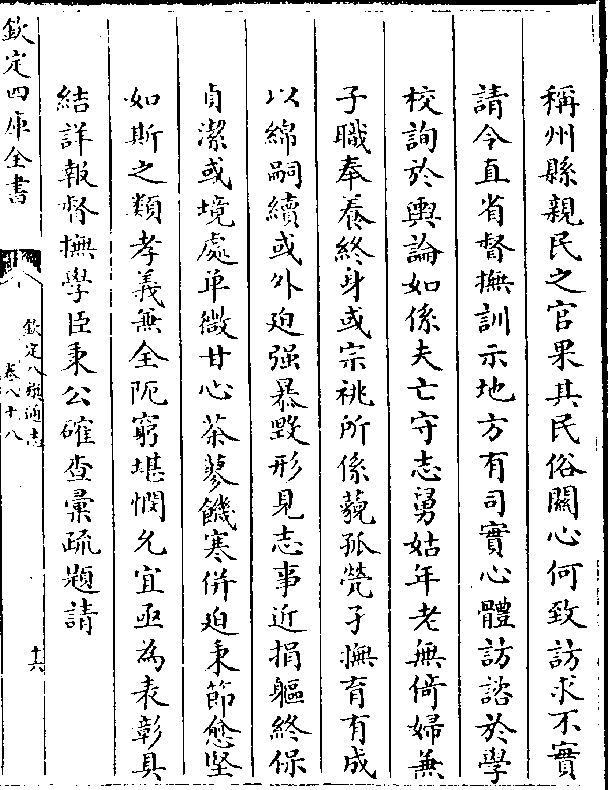 稱州縣親民之官果其民俗關心何致訪求不實
請令直省督撫訓示地方有司實心體訪諮於學
校詢於輿論如係夫亡守志舅姑年老無倚婦兼
子職奉養終身或宗祧所係藐孤煢孑撫育有成
以綿嗣續或外迫强暴毀形見志事近捐軀終保
貞潔或境處单微甘心荼蓼饑寒併迫秉節愈堅
如斯之類孝義無全阨窮堪憫允宜亟為表彰具
結詳報督撫學臣秉公確查彙疏題請
欽定四庫全書
欽定八旗通志
卷八十八
十六